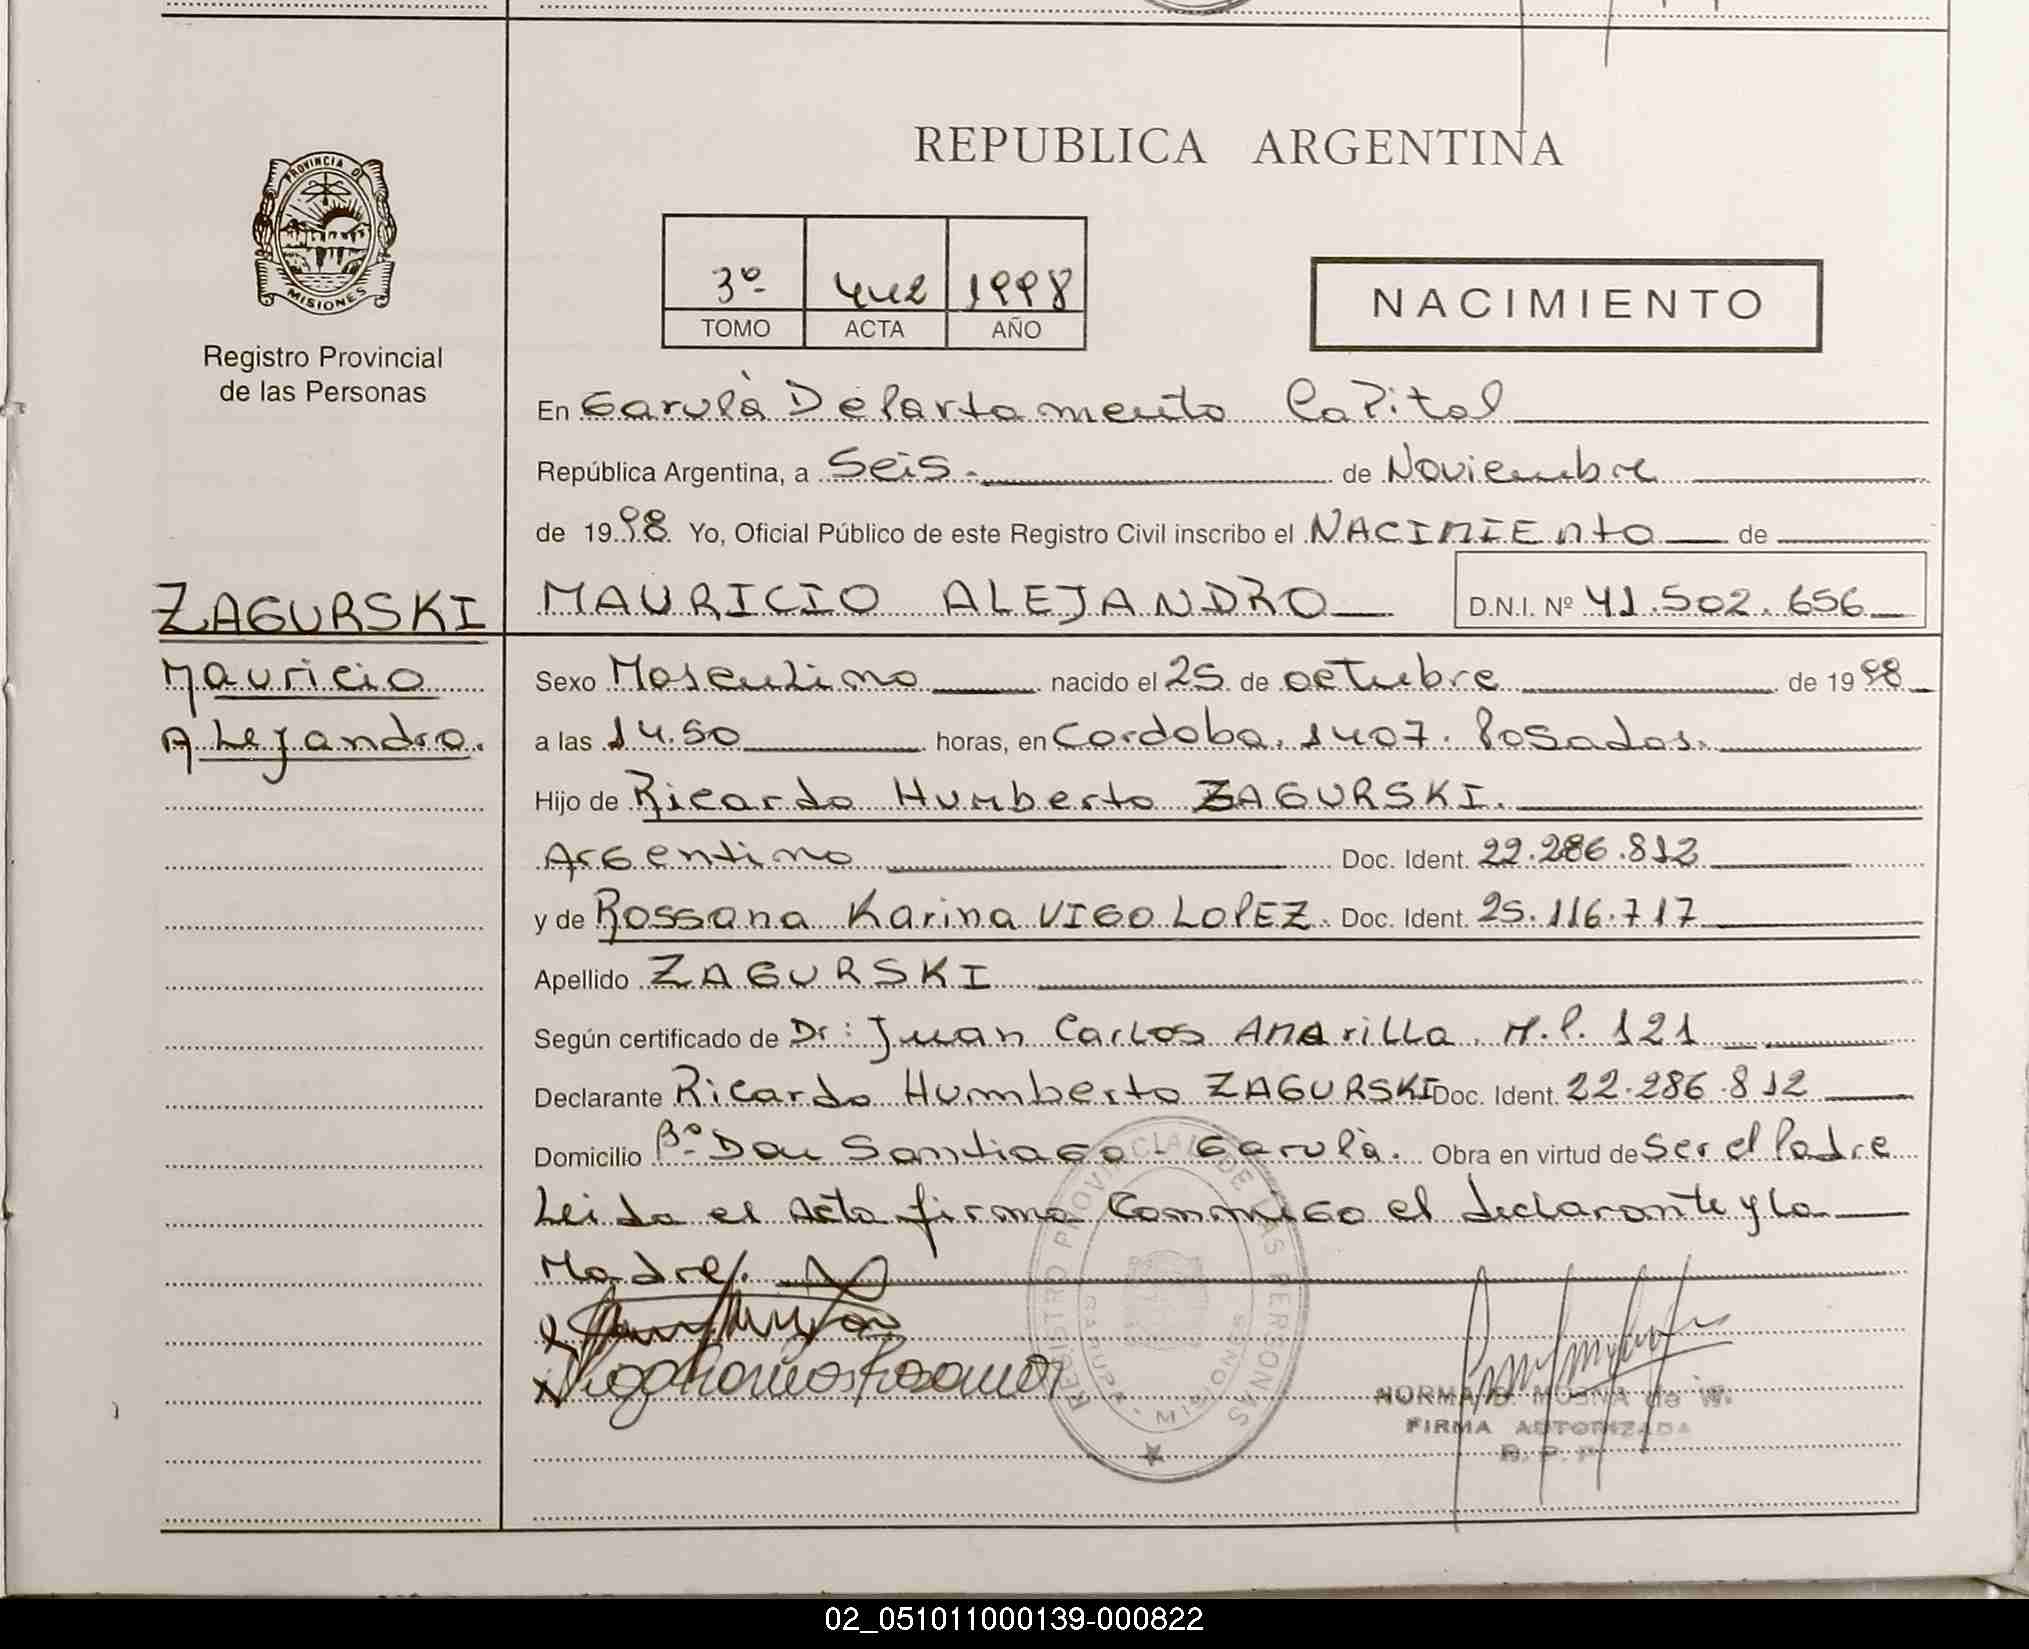 PROVINCIA DE
MISIONES
Registro Provincial
de las Personas
REPUBLICA ARGENTINA
3º 442 1998
TOMO ACTA AÑO
NACIMIENTO
En Garupà Departamento Capital
República Argentina, a Seis.- de Noviembre
de 1998 Yo, Oficial Público de este Registro Civil inscribo el NACIMIEnto de
ZAGURSKI MAURICIO ALEJANDRO D.N.I. Nº 41.502.656
Mauricio
ALejandro.
Sexo Masculino nacido el 25 de octubre de 1998
a las 14.50 horas, en Cordoba. 1407. Posadas.
Hijo de Ricardo Humberto ZAGURSKI.
Argentino Doc. Ident. 22.286.812
y de Rossana Karina VIGO LOPEZ. Doc. Ident. 25.116.717
Apellido ZAGURSKI
Según certificado de Dr: Juan Carlos AMArilla. M.P. 121
Declarante Ricardo Humberto ZAGURSKI Doc. Ident. 22.286.812
Domicilio Bº Don Santiago - Garupà. Obra en virtud de ser el Padre
Leida el Acta firma Conmigo el declarante y la
Madre.
REGISTRO PROVINCIAL DE LAS PERSONAS
GARUPA - MISIONES
NORMA B. de W.
FIRMA AUTORIZADA
R. P. P.
02_051011000139-000822